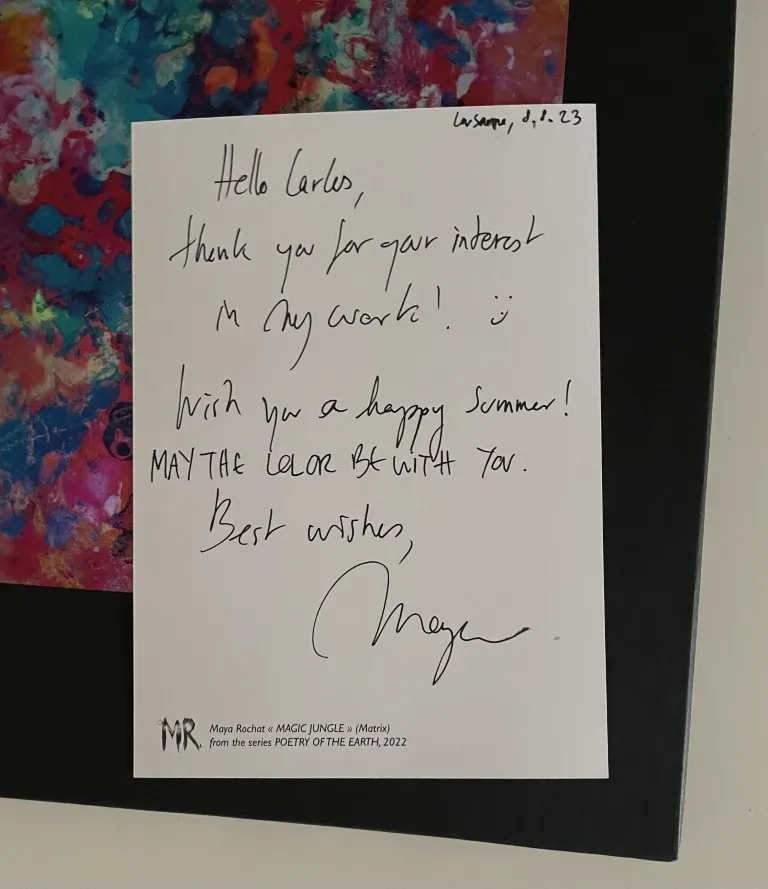 Lausanne, 8.8.23
Hello Carlos,
thank you for your interest
in my work! :)
Wish you a happy summer!
MAY THE COLOR BE WITH YOU.
Best wishes,
Maya
MR. Maya Rochat « MAGIC JUNGLE » (Matrix)
from the series POETRY OF THE EARTH, 2022